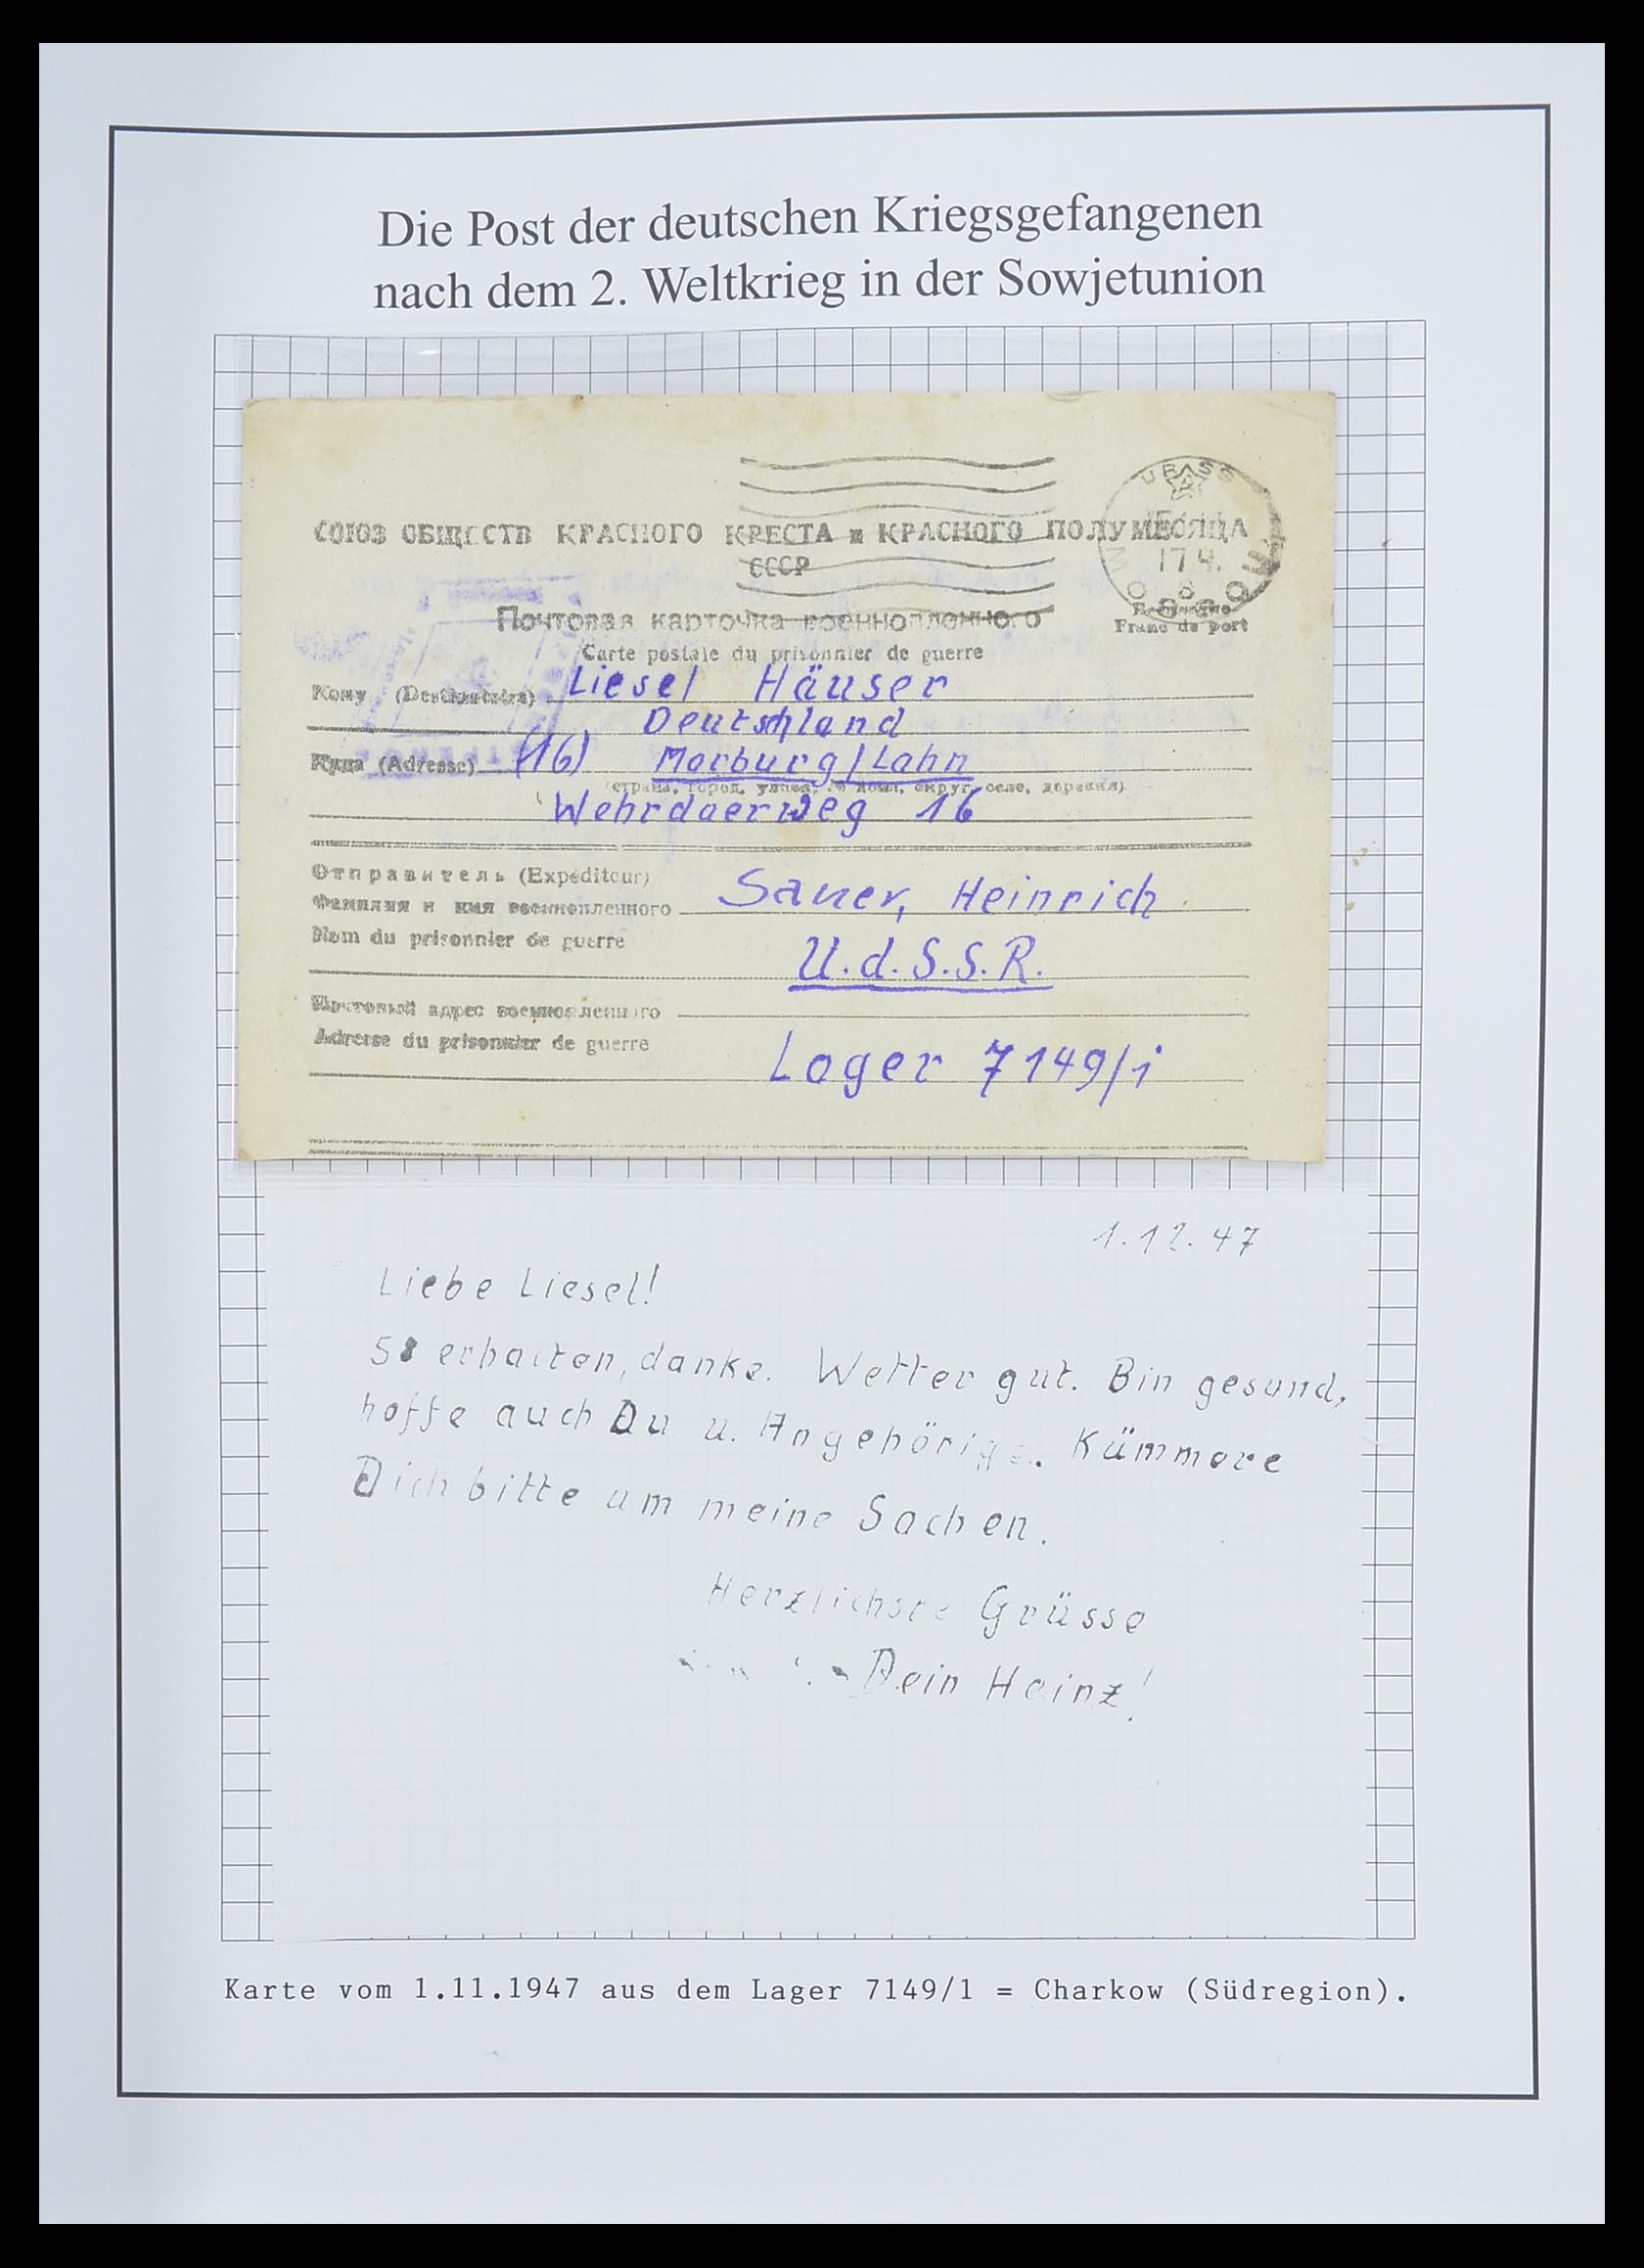 Die Post der deutschen Kriegsgefangenen
nach dem 2. Weltkrieg in der Sowjetunion
СОЮЗ ОБЩЕСТВ КРАСНОГО КРЕСТА и КРАСНОГО ПОЛУМЕСЯЦА
СССР
Почтовая карточка военнопленного
Franc de port
Carte postale du prisonnier de guerre
Кому (Destinataire) Liesel Häuser
Deutschland
Куда (Adresse) (16) Marburg/Lahn
(страна, город, улица, № дома, округ, село, деревня)
Wehrdaerweg 16
Отправитель (Expéditeur)
Фамилия и имя военнопленного Sauer, Heinrich
Nom du prisonnier de guerre
U.d.S.S.R.
Почтовый адрес военнопленного
Adresse du prisonnier de guerre
Lager 7149/1
1.12.47
Liebe Liesel!
58 erhalten, danke. Wetter gut. Bin gesund,
hoffe auch Du u. Angehörige. Kümmere
Dich bitte um meine Sachen.
Herzlichste Grüsse
Dein Heinz!
Karte vom 1.11.1947 aus dem Lager 7149/1 = Charkow (Südregion).